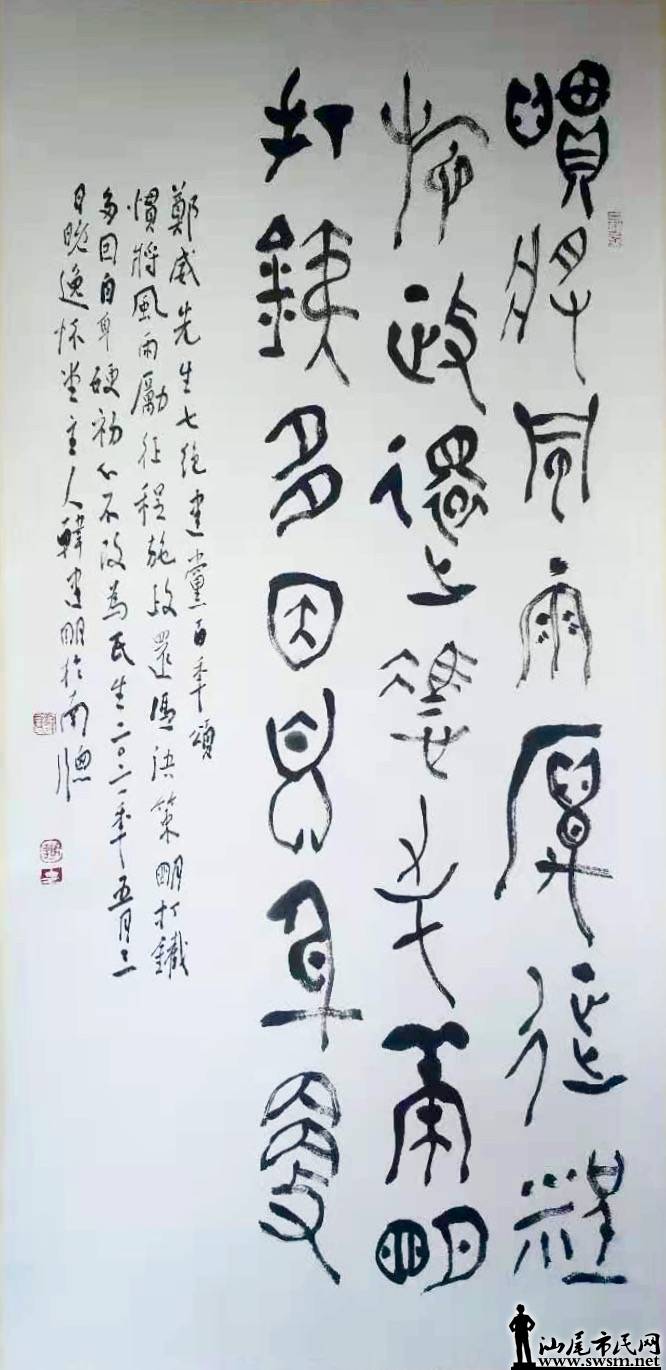 慣將風雨厲征程
施政還憑決策明
打鐵多因自身硬
鄭威先生七绝建黨百年頌
慣將風雨勵征程施政還憑決策明打鐵
多因自身硬初心不改為民生二〇二一年五月三
日晚逸怀堂主人韓建明於南牕
汕尾市民网
www.swsm.net